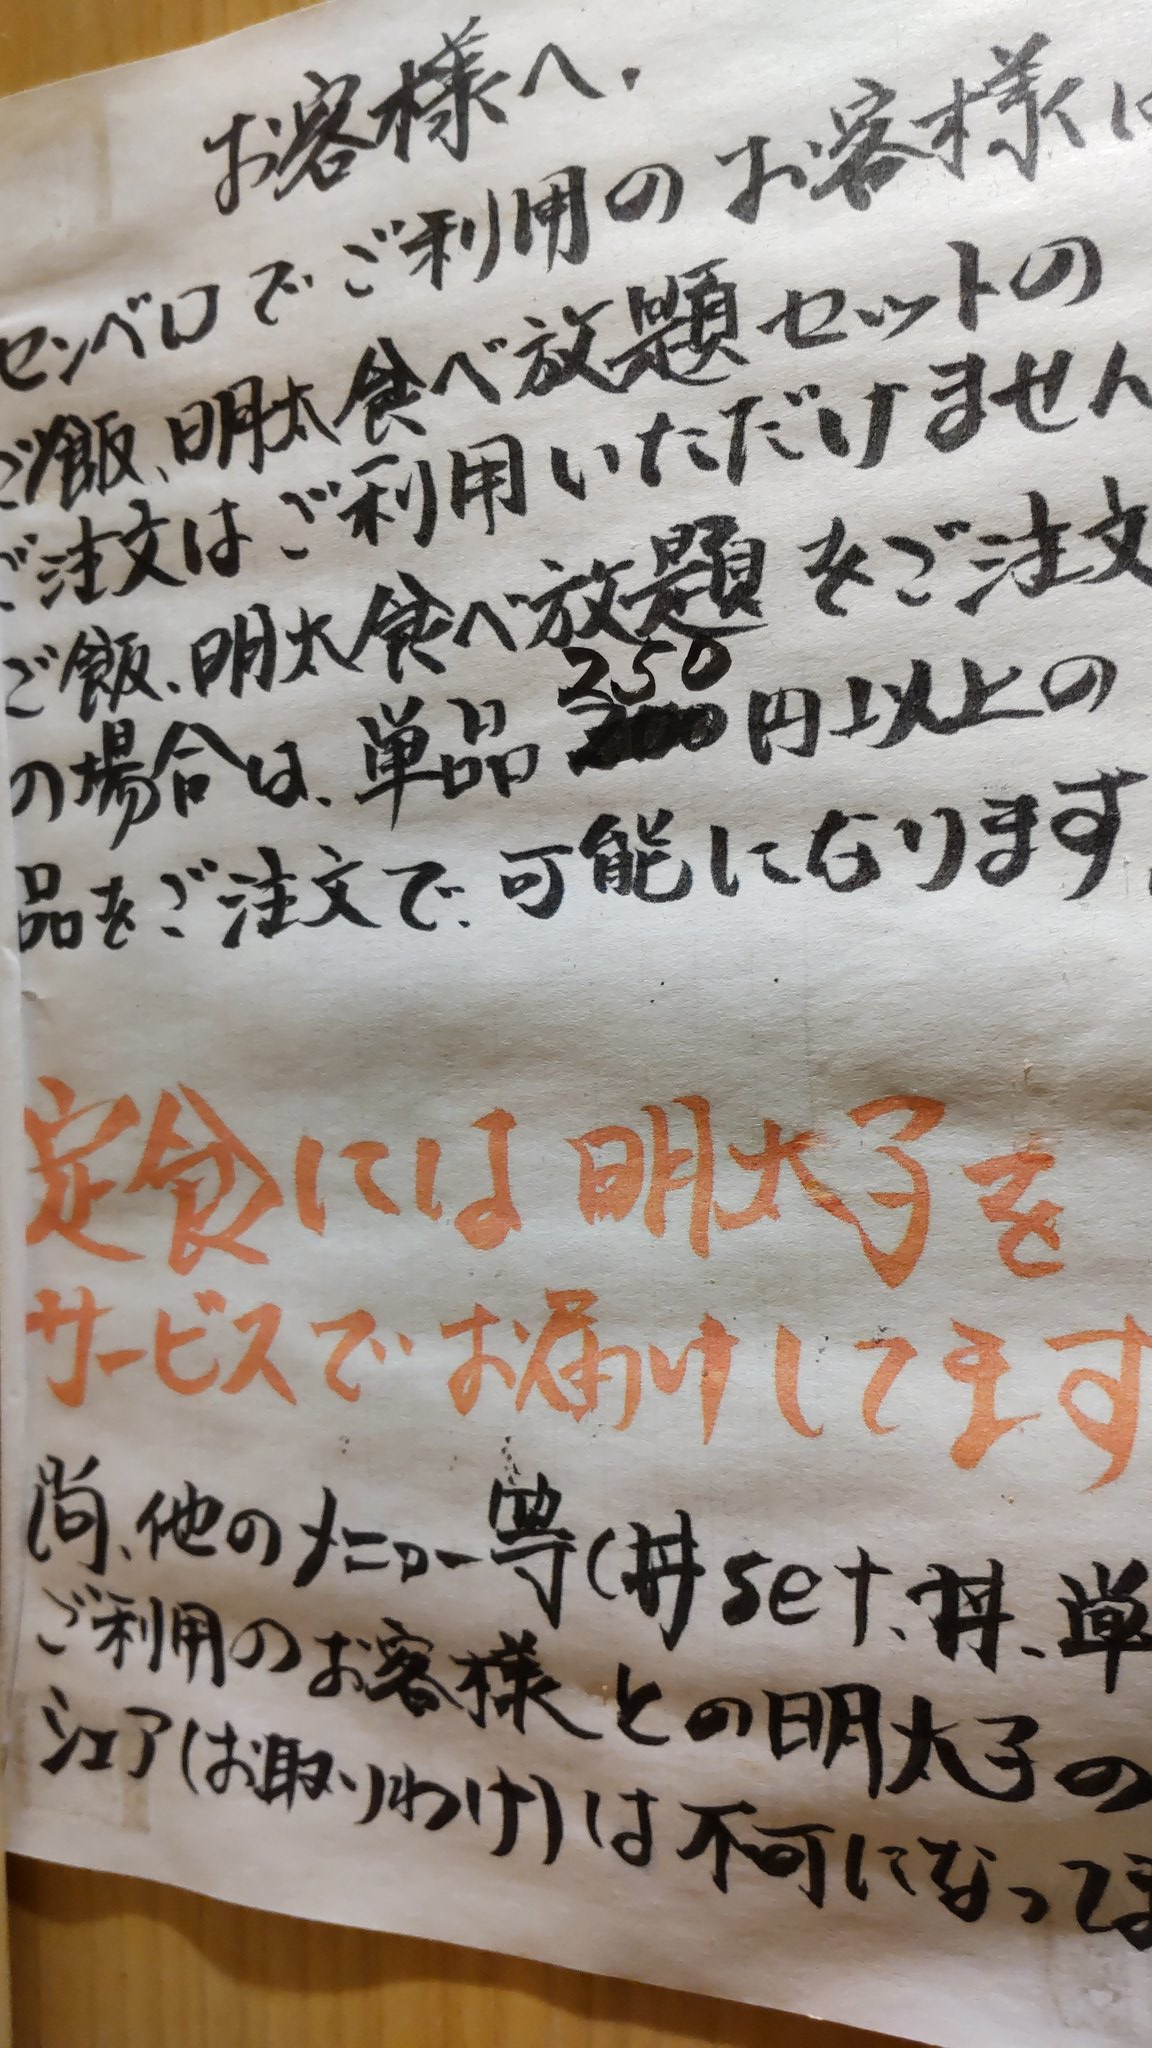 お客様へ.
センベロでご利用のお客様は
ご飯、明太食べ放題セットの
ご注文はご利用いただけません
ご飯、明太食べ放題をご注文
の場合は、単品250円以上の
品をご注文で、可能になります
定食には明太子を
サービスでお届けしてます
尚、他のメニュー等(丼set、丼、単
ご利用のお客様との明太子の
シェア(お取りわけ)は不可になってま